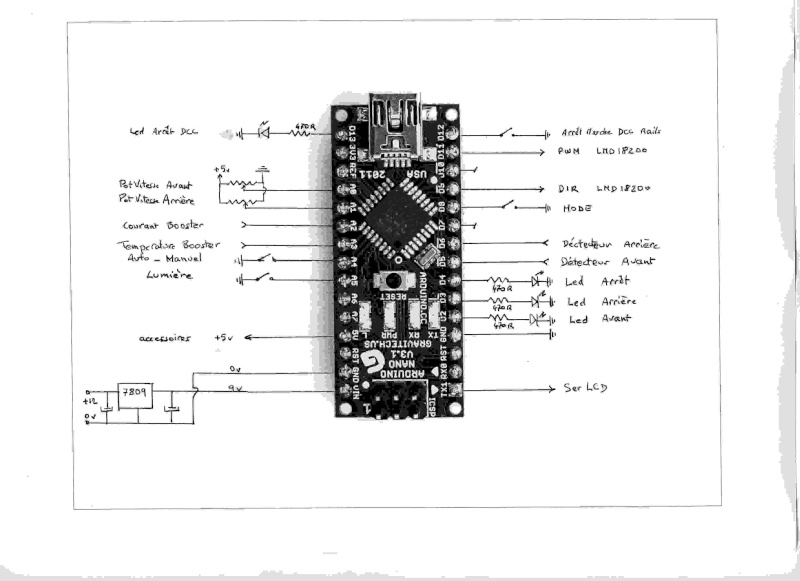 Led Arrêt DCC
470R
+5v
Pot Vitesse Avant
Pot Vitesse Arrière
Courant Booster
Temperature Booster
Auto _ Manuel
Lumière
accessoires +5v
0v
9v
+12
7809
0v
D13
3V3
A0
A1
A2
A3
A4
A5
A6
A7
5V
RST
GND
VIN
USA
2011
RESET
ARDUINO.CC
L
PWR
RX
TX
GRAVITECH.US
ARDUINO
NANO
V3.1
1
ICSP
D12
D11
D10
D9
D8
D7
D6
D5
D4
D3
D2
GND
RST
RX0
TX1
Arrêt Marche DCC Rails
PWM LMD18200
DIR LMD18200
MODE
Déctecteur Arrière
Détecteur Avant
470R
Led Arrêt
470R
Led Arrière
470R
Led Avant
Ser LCD